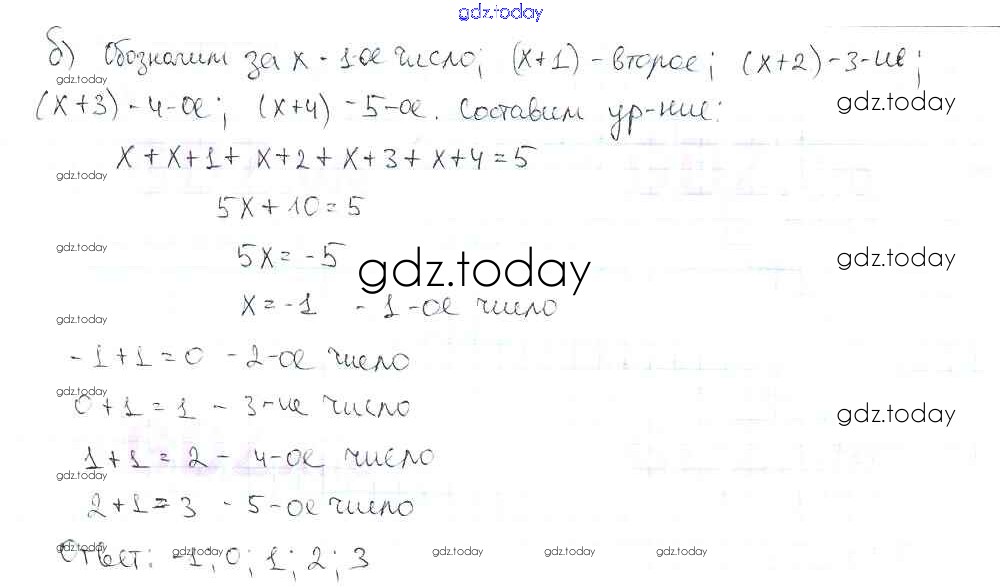 gdz.today
б) Обозначим за x - 1-ое число; (x+1) - второе; (x+2) - 3-ие;
gdz.today
(x+3) - 4-ое; (x+4) - 5-ое. Составим ур-ние:
gdz.today
x + x+1 + x+2 + x+3 + x+4 = 5
gdz.today
5x + 10 = 5
5x = -5
gdz.today
gdz.today
gdz.today
x = -1 - 1-ое число
gdz.today
-1+1 = 0 - 2-ое число
gdz.today
0+1 = 1 - 3-ие число
gdz.today
1+1 = 2 - 4-ое число
gdz.today
2+1 = 3 - 5-ое число
Ответ: -1; 0; 1; 2; 3
gdz.today gdz.today gdz.today gdz.today gdz.today